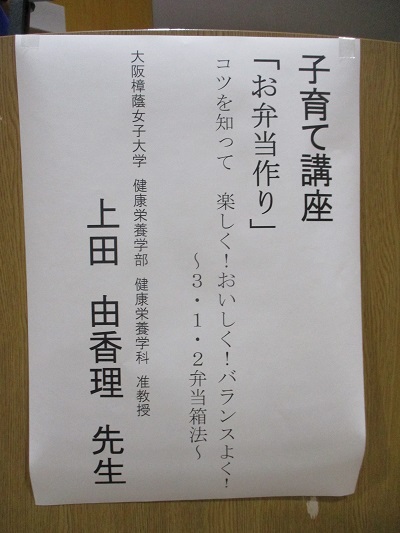 子育て講座
「お弁当作り」
コツを知って 楽しく!おいしく!バランスよく!
～3・1・2弁当箱法～
大阪樟蔭女子大学 健康栄養学部 健康栄養学科 准教授
上田 由香理 先生